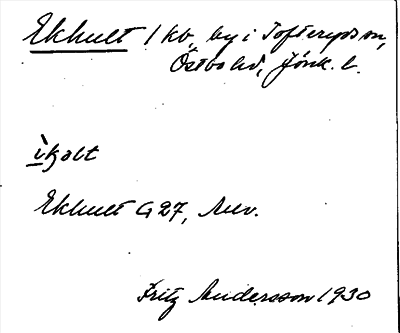 Ekhult 1 kv, by i Tofteryds sn,
Östbo hd, Jönk. l.
ìkɟolt
Ekhult G 27, Auv.
Fritz Andersson 1930